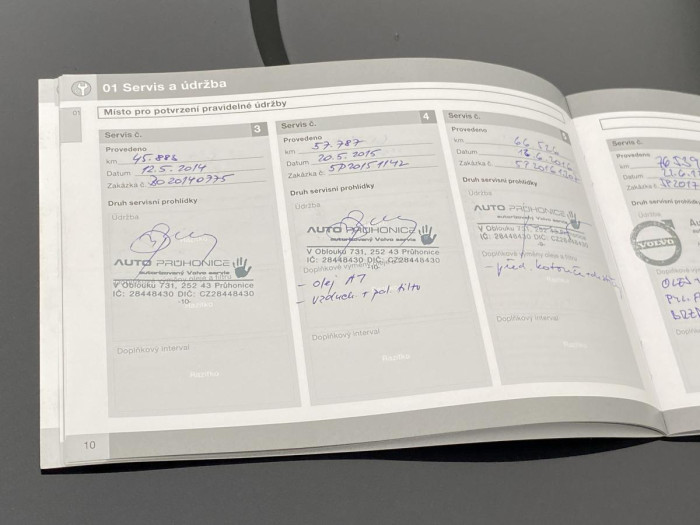 01 Servis a údržba
01
Místo pro potvrzení pravidelné údržby
Servis č. 3
Provedeno
km 45.886
Datum 12.5.2014
Zakázka č. 20140775
Druh servisní prohlídky
Údržba
AUTO PRŮHONICE
autorizovaný Volvo servis
V Oblouku 731, 252 43 Průhonice
IČ: 28448430 DIČ: CZ28448430
-10-
Razítko
Doplňkový interval
Razítko
10
Servis č. 4
Provedeno
km 57.787
Datum 20.5.2015
Zakázka č. SP20151142
Druh servisní prohlídky
Údržba
AUTO PRŮHONICE
autorizovaný Volvo servis
V Oblouku 731, 252 43 Průhonice
IČ: 28448430 DIČ: CZ28448430
-10-
- olej A7
- vzduch. + pol filtr
Doplňkový interval
Razítko
Servis č.
Provedeno
km 66.526
Datum 16.6.2016
Zakázka č.
Druh servisní prohlídky
Údržba
AUTO PRŮHONICE
autorizovaný Volvo servis
V Oblouku 731, 252
IČ: 28448430 DIČ:
- před. kotouče
Doplňkový interval
Razítko
Servis č.
Provedeno
km 76 529
Datum
Zakázka č. SP2017
Druh servisní
Údržba
VOLVO
OLEJ